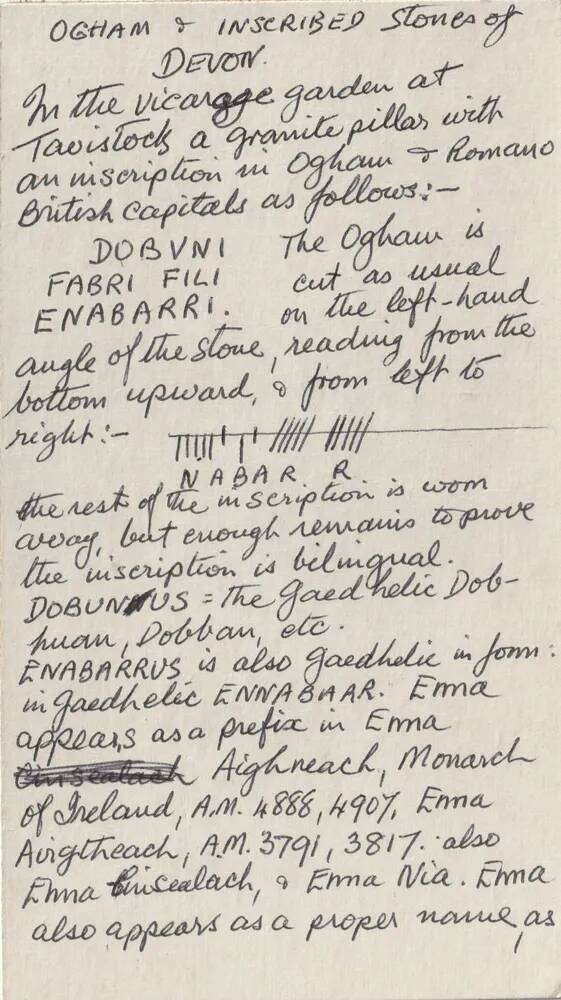 OGHAM & INSCRIBED Stones of
DEVON.
In the vicarage garden at
Tavistock a granite pillar with
an inscription in Ogham & Romano
British capitals as follows:—
DOBVNI The Ogham is
FABRI FILI cut as usual
ENABARRI. on the left-hand
angle of the stone, reading from the
bottom upward, & from left to
right:-
NABAR R
the rest of the inscription is worn
away, but enough remains to prove
the inscription is bilingual.
DOBUNNUS = the Gaedhelic Dob-
huan, Dobban, etc.
ENABARRUS is also Gaedhelic in form:
in Gaedhelic ENNABAAR. Enna
appears as a prefix in Enna
Aighneach, Monarch
of Ireland, A.M. 4888, 4907, Enna
Airgtheach, A.M. 3791, 3817. also
Enna Cinsealach, & Enna Nia. Enna
also appears as a proper name, as